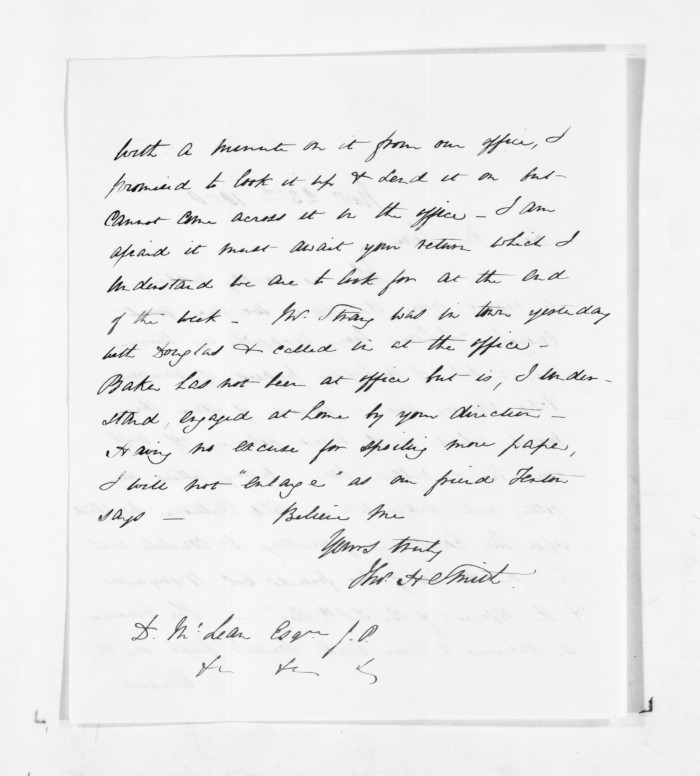 with a minute on it from our office, I
promised to look it up & send it on but
cannot come across it in the office - I am
afraid it must await your return which I
understand we are to look for at the end
of the week - Mr. Strang was in town yesterday
with Douglas & called in at the office -
Baker has not been at office but is, I under-
stand, engaged at home by your direction -
Having no excuse for spoiling more paper,
I will not "enlarge" as our friend Fenton
says - Believe me
Yours truly
Thos. H Smith.
D. McLean Esqre J.P.
&c &c &c